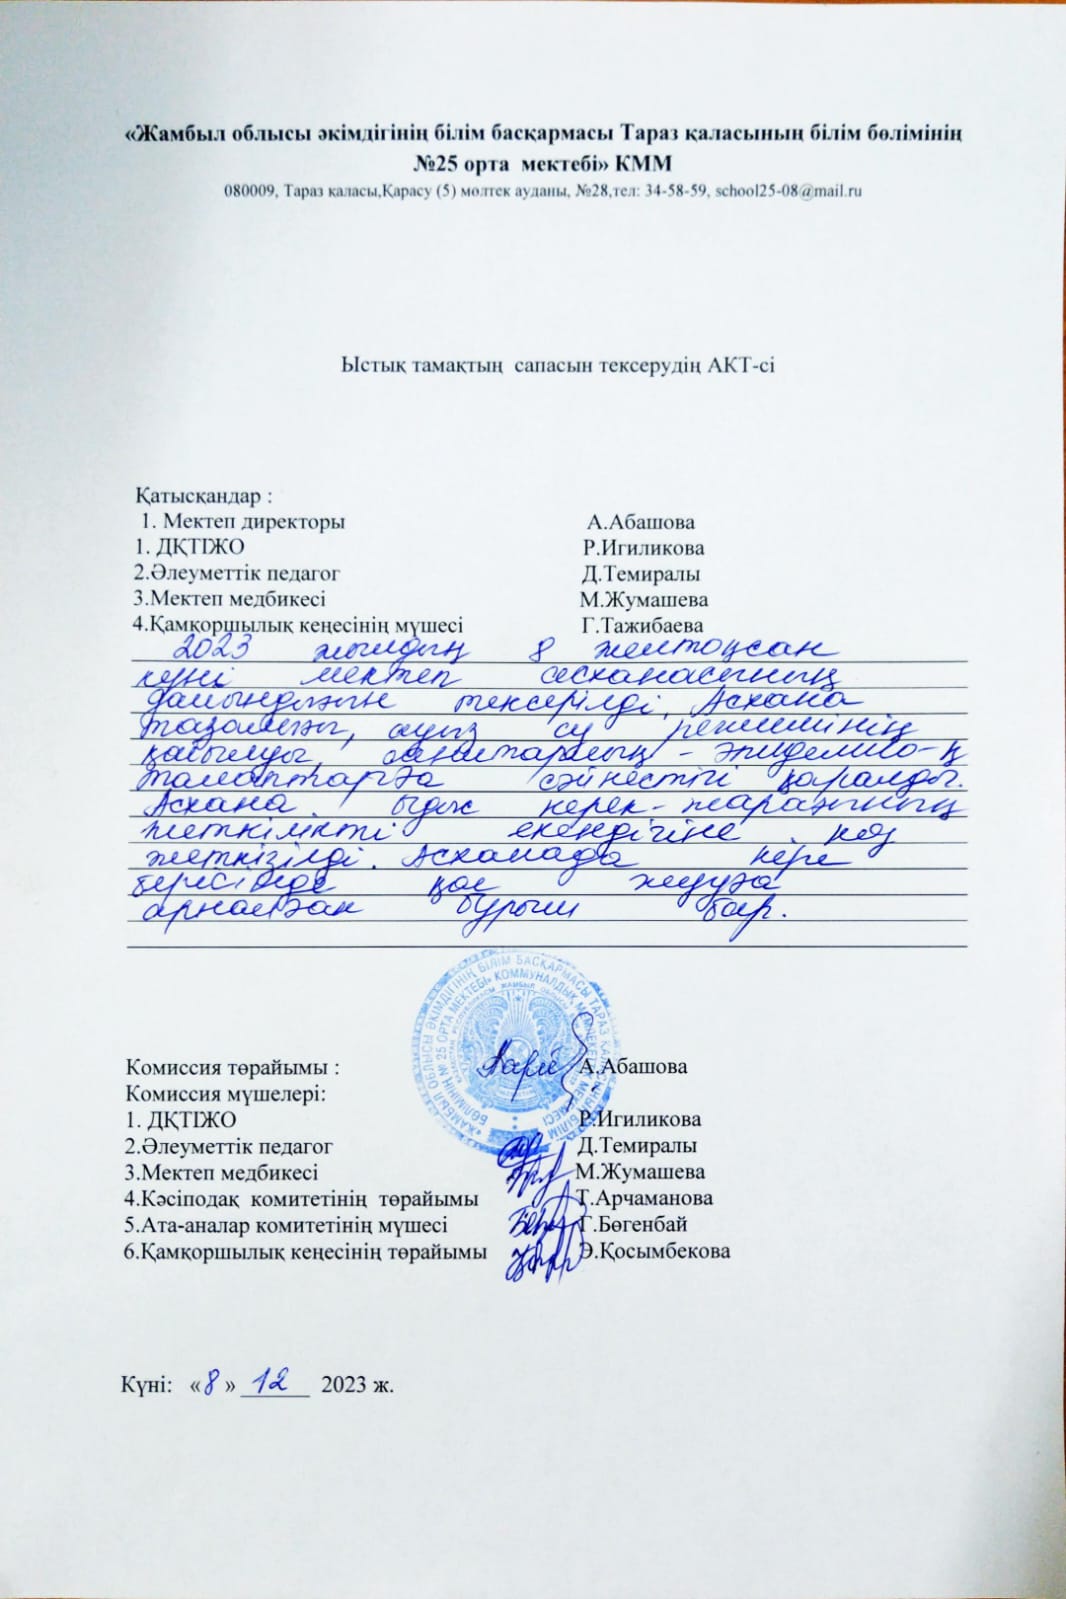 «Жамбыл облысы әкімдігінің білім басқармасы Тараз қаласының білім бөлімінің
№25 орта мектебі» КММ
080009, Тараз қаласы,Қарасу (5) мөлтек ауданы, №28,тел: 34-58-59, school25-08@mail.ru
Ыстық тамақтың сапасын тексерудің АКТ-сі
Қатысқандар :
1. Мектеп директоры А.Абашова
1. ДҚТІЖО Р.Игиликова
2.Әлеуметтік педагог Д.Темиралы
3.Мектеп медбикесі М.Жумашева
4.Қамқоршылық кеңесінің мүшесі Г.Тажибаева
2023 жылдың 8 желтоқсан
күні мектеп асханасының
дайындығын тексерілді. Асхана
тазалығы, ауыз су режимінің
санитарлық - эпидемио-қ
талаптарға сәйкестігі қаралды.
Асхана ыдыс керек-жарағының
жеткілікті екендігіне көз
жеткізілді. Асханада кіре
берісінде қол жууға
арналған бұрыш бар.
«ЖАМБЫЛ ОБЛЫСЫ ӘКІМДІГІНІҢ БІЛІМ БАСҚАРМАСЫ ТАРАЗ ҚАЛАСЫНЫҢ БІЛІМ
БӨЛІМІНІҢ № 25 ОРТА МЕКТЕБІ» КОММУНАЛДЫҚ МЕМЛЕКЕТТІК МЕКЕМЕСІ
Комиссия төрайымы : А.Абашова
Комиссия мүшелері:
1. ДҚТІЖО Р.Игиликова
2.Әлеуметтік педагог Д.Темиралы
3.Мектеп медбикесі М.Жумашева
4.Кәсіподақ комитетінің төрайымы Т.Арчаманова
5.Ата-аналар комитетінің мүшесі Г.Бөгенбай
6.Қамқоршылық кеңесінің төрайымы Э.Қосымбекова
Күні: «8» 12 2023 ж.